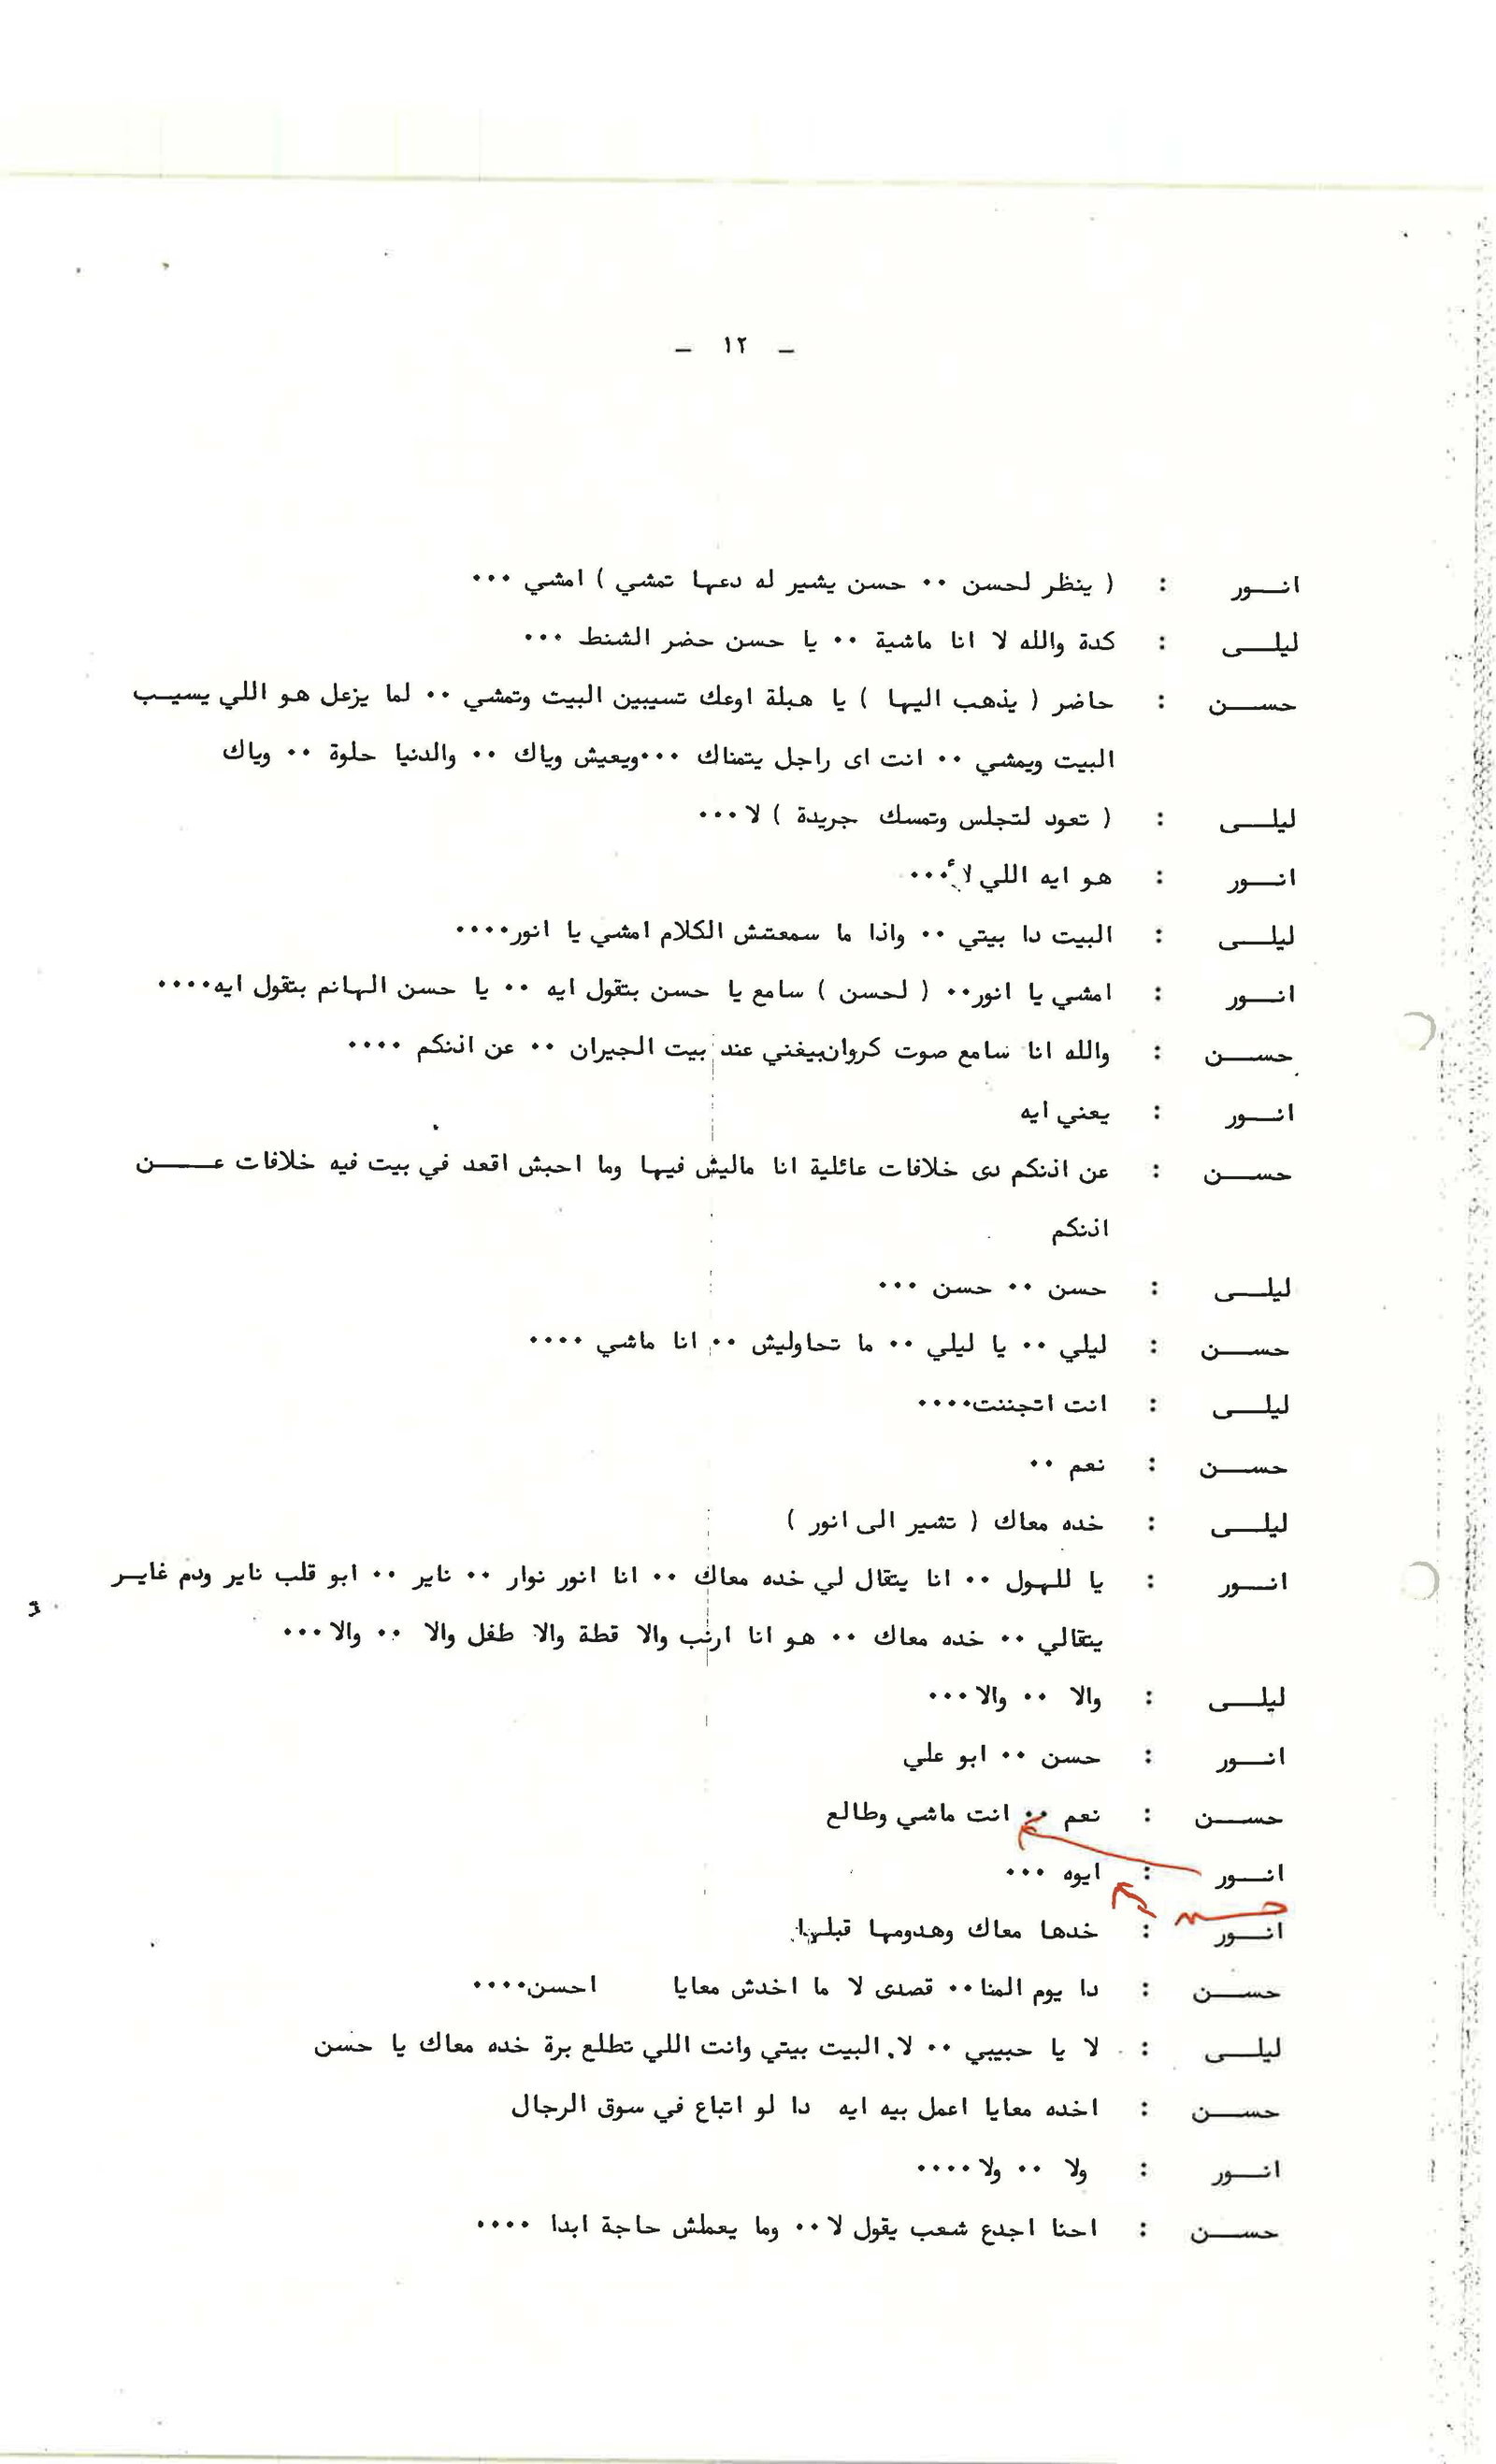 - ١٢ -
انــور : ( ينظر لحسن ٠٠ حسن يشير له دعها تمشي ) امشي ٠٠٠
ليلــى : كدة والله لا انا ماشية ٠٠ يا حسن حضر الشنط ٠٠٠
حســن : حاضر ( يذهب اليها ) يا هبلة اوعك تسيبين البيت وتمشي ٠٠ لما يزعل هو اللي يسيــب
البيت ويمشي ٠٠ انت اى راجل يتمناك ٠٠٠ويعيش وياك ٠٠ والدنيا حلوة ٠٠ وياك
ليلــى : ( تعود لتجلس وتمسك جريدة ) لا ٠٠٠
انــور : هو ايه اللي لأ ٠٠٠
ليلــى : البيت دا بيتي ٠٠ واذا ما سمعتش الكلام امشي يا انور٠٠٠٠
انــور : امشي يا انور٠٠ ( لحسن ) سامع يا حسن بتقول ايه ٠٠ يا حسن الهانم بتقول ايه٠٠٠٠
حســن : والله انا سامع صوت كروان بيغني عند بيت الجيران ٠٠ عن اذنكم ٠٠٠٠
انــور : يعني ايه
حســن : عن اذنكم دى خلافات عائلية انا ماليش فيها وما احبش اقعد في بيت فيه خلافات عــــن
اذنكم
ليلــى : حسن ٠٠ حسن ٠٠٠
حســن : ليلي ٠٠ يا ليلي ٠٠ ما تحاوليش ٠٠ انا ماشي ٠٠٠٠
ليلــى : انت اتجننت٠٠٠٠
حســن : نعم ٠٠
ليلــى : خده معاك ( تشير الى انور )
انــور : يا للهول ٠٠ انا يتقال لي خده معاك ٠٠ انا انور نوار ٠٠ ناير ٠٠ ابو قلب ناير ودم غايــر
يتقالي ٠٠ خده معاك ٠٠ هو انا ارنب والا قطة والا طفل والا ٠٠ والا ٠٠٠
ليلــى : والا ٠٠ والا ٠٠٠
انــور : حسن ٠٠ ابو علي
حســن : نعم ٠٠ انت ماشي وطالع
انــور : ايوه ٠٠٠
حسن
انــور : خدها معاك وهدومها قبلها
حســن : دا يوم المنا٠٠ قصدى لا ما اخدش معايا احسن٠٠٠٠
ليلــى : لا يا حبيبي ٠٠ لا. البيت بيتي وانت اللي تطلع برة خده معاك يا حسن
حســن : اخده معايا اعمل بيه ايه دا لو اتباع في سوق الرجال
انــور : ولا ٠٠ ولا ٠٠٠٠
حســن : احنا اجدع شعب يقول لا ٠٠ وما يعملش حاجة ابدا ٠٠٠٠